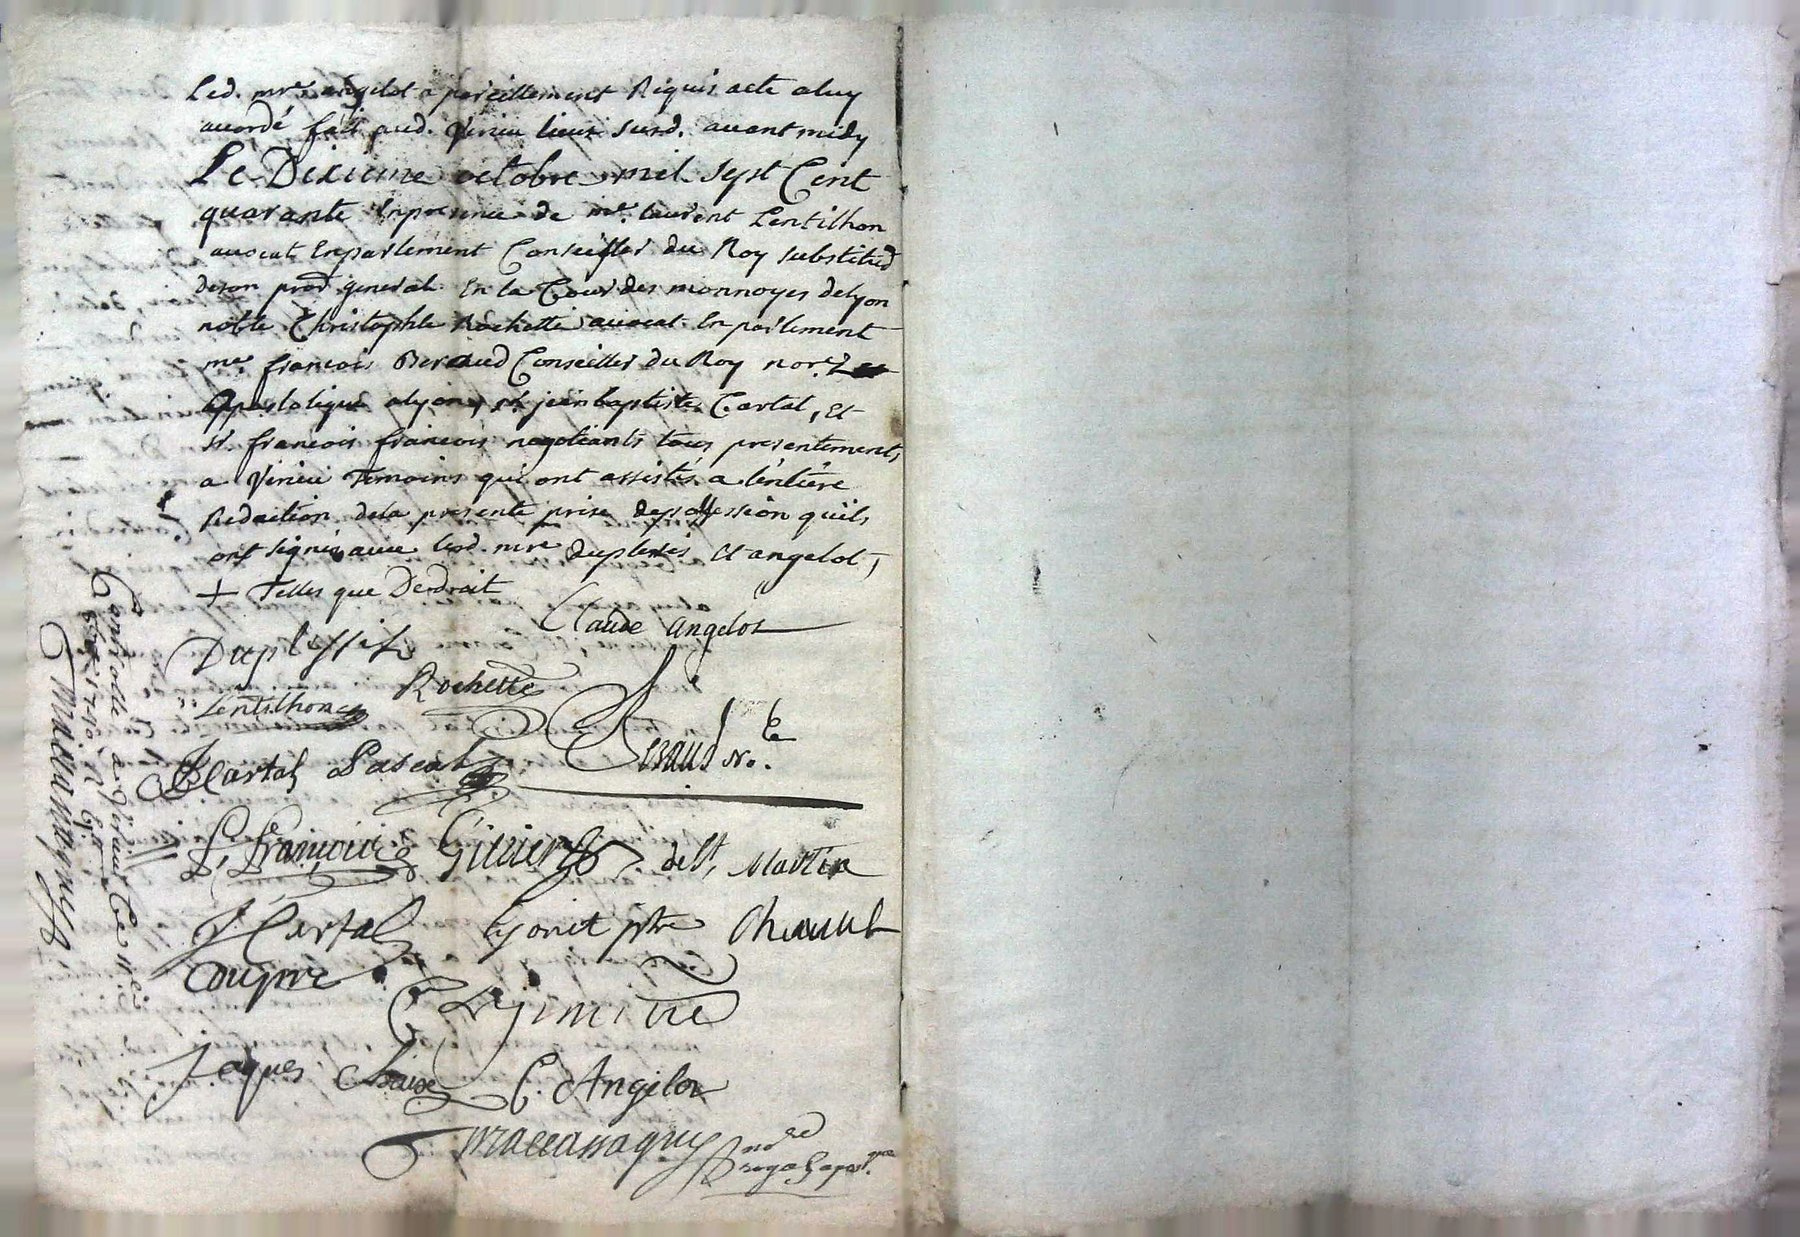 Led. mre angelot a pareillement Requis acte a luy
acordé fait aud. Virieu lieux susd. avant midy
Le Dixieme octobre mil Sept Cent
quarante En presence de me. laurent Lentilhon
avocat En parlement Conseiller du Roy substitud
de son procr general En la Cour des monnoyes de lyon
noble Christophle Rochette avocat En parlement
me. francois Beraud Conseiller du Roy nore.
Appostolique a lyon, sr. jean baptiste Cartal, Et
sr. francois francois negotiants tous presentement
a Virieu Temoins qui ont assistés a l'entiere
Redaction de la presente prise depossession quils
ont signée avec lesd. mre duplessis Et angelot,
+ Telles que De droit
Claude Angelot
Duplessis
Rochette
Lentilhon
Beraud Nore
JB Cartal Pascal
f. francois
de St. Martin
J Cartal
ptre
Dupre
Jaques Chaize
C. Angelot
nore
royal apostque
Controllé a Virieu le